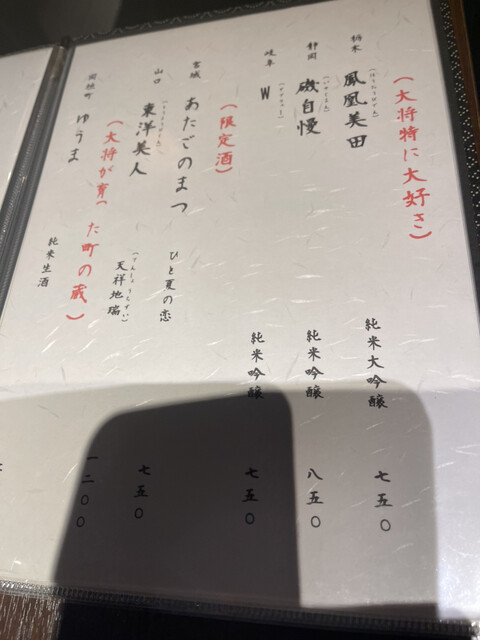 (大将特に大好き)
栃木 鳳凰美田 (ほうおうびでん) 純米大吟醸 七五〇
静岡 磯自慢 (いそじまん) 純米吟醸 八五〇
岐阜 W (ダブリュー) 純米吟醸 七五〇
(限定酒)
宮城 あたごのまつ ひと夏の恋 七五〇
山口 東洋美人 (とうようびじん) 天祥地瑞 (てんしょうちずい) 一二〇〇
(大将が育った町の蔵)
岡垣町 ゆうま 純米生酒